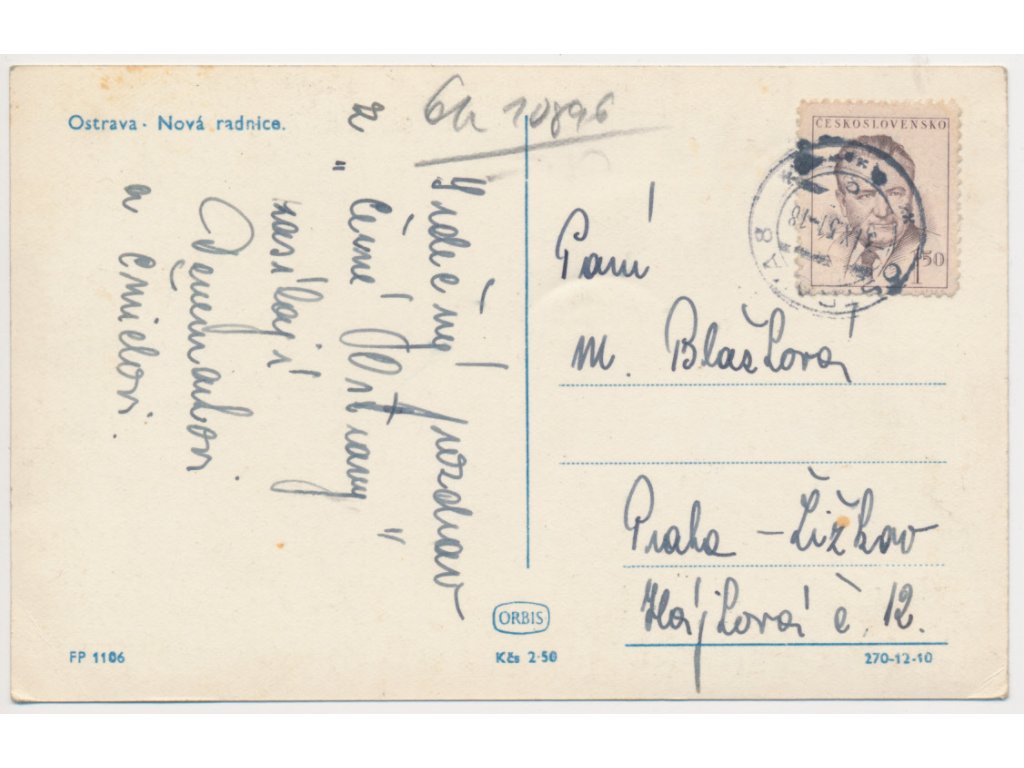 Ostrava · Nová radnice.
6h 10896
Srdečný pozdrav
z " Černé Ostravy "
zasílají
a
ČESKOSLOVENSKO
1 50
Paní
M. Blažková
Praha – Žižkov
Hájková č. 12.
ORBIS
FP 1106
Kčs 2·50
270-12-10